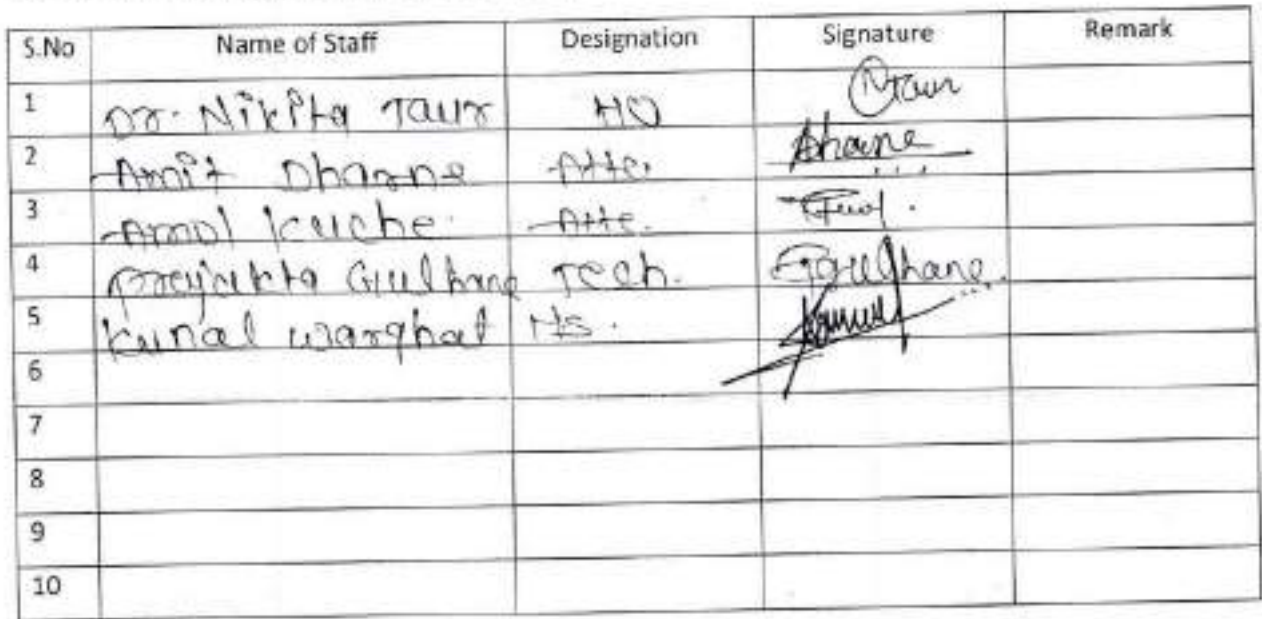 S.No Name of Staff Designation Signature Remark
1 Dr. Nikita Taur MO Ntaur
2 Amit Dharne Atte. Dharne
3 Amol Kuche. Atte.
4 Prayukta Gulhane Tech. Ggulhane.
5 Kunal Warghat MS.
6
7
8
9
10